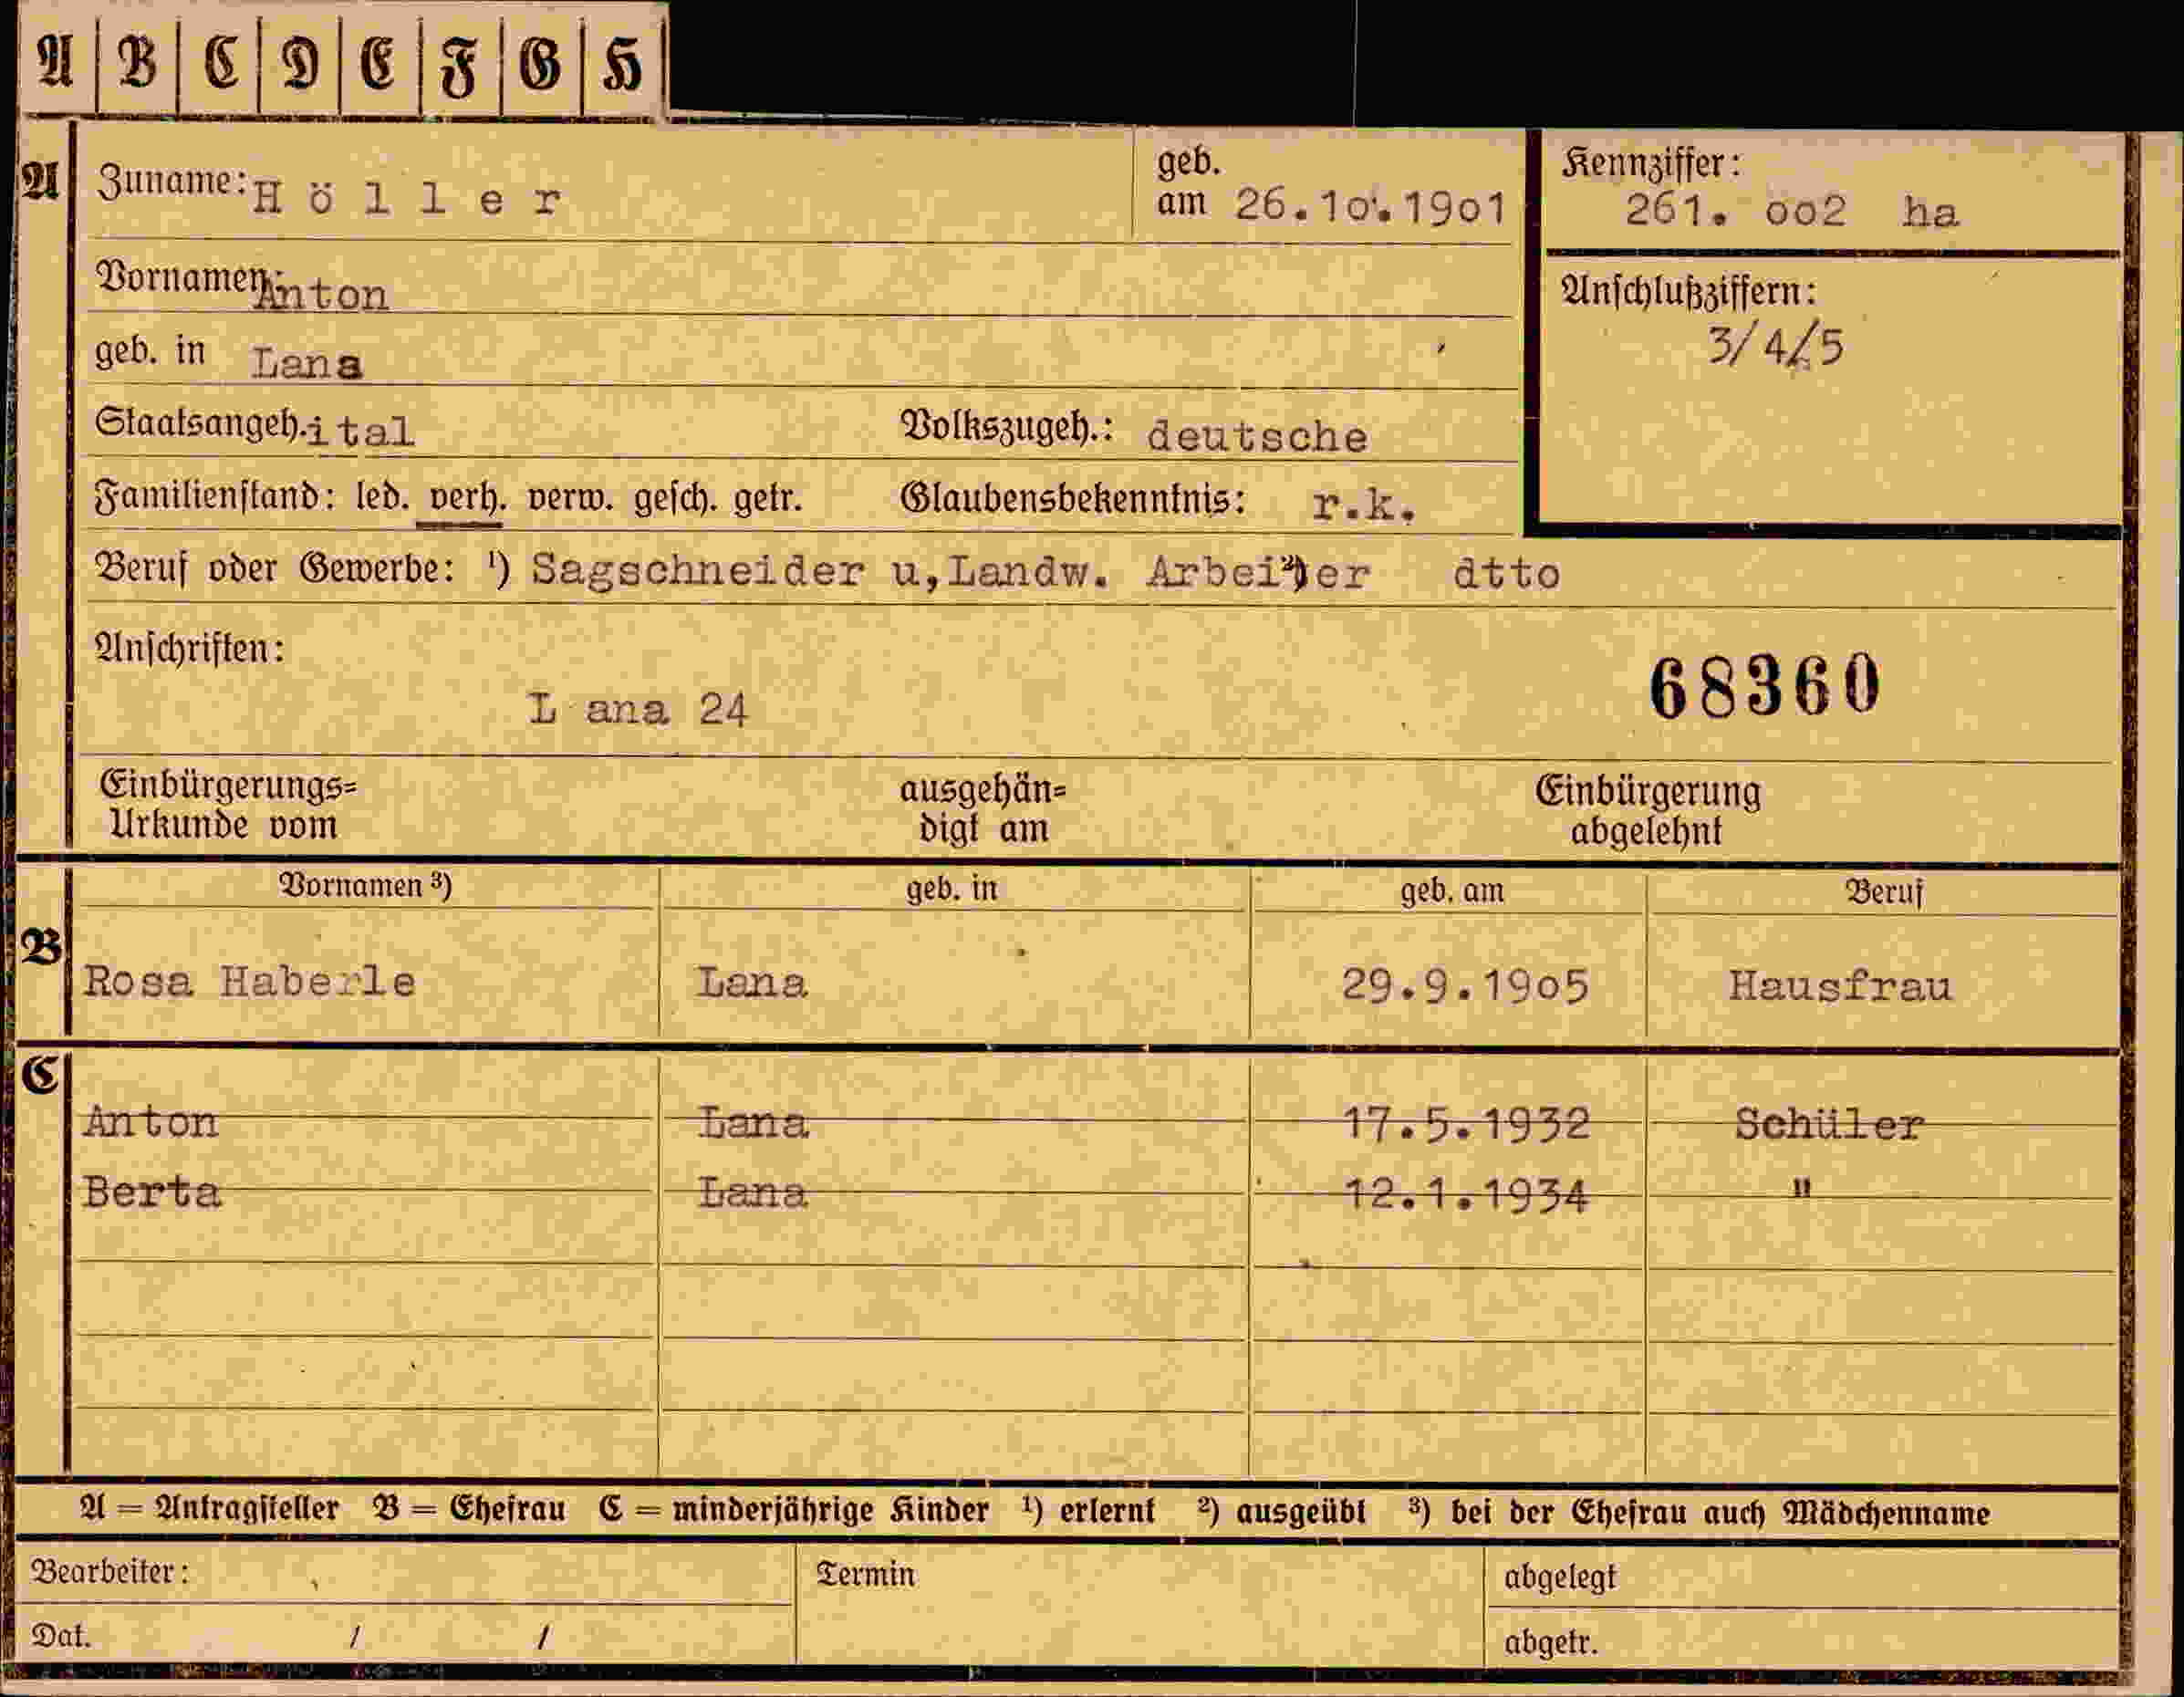 A B C D E F G H
A Zuname: Höller geb. am 26.10.1901 Kennziffer: 261. oo2 ha
Vornamen: Anton
Anschlußziffern: 3/4/5
geb. in Lana
Staatsangeh. ital Volkszugeh.: deutsche
Familienstand: led. verh. verw. gesch. getr. Glaubensbekenntnis: r.k.
Beruf oder Gewerbe: ¹) Sagschneider u,Landw. Arbeiter ²) dtto
Anschriften:
L ana 24
68360
Einbürgerungs=
Urkunde vom
ausgehän=
digt am
Einbürgerung
abgelehnt
Vornamen ³) geb. in geb. am Beruf
B Rosa Haberle Lana 29.9.19o5 Hausfrau
C
Anton Lana 17.5.1932 Schüler
Berta Lana 12.1.1934 "
A = Antragsteller B = Ehefrau C = minderjährige Kinder ¹) erlernt ²) ausgeübt ³) bei der Ehefrau auch Mädchenname
Bearbeiter: Termin abgelegt
Dat. / / abgetr.